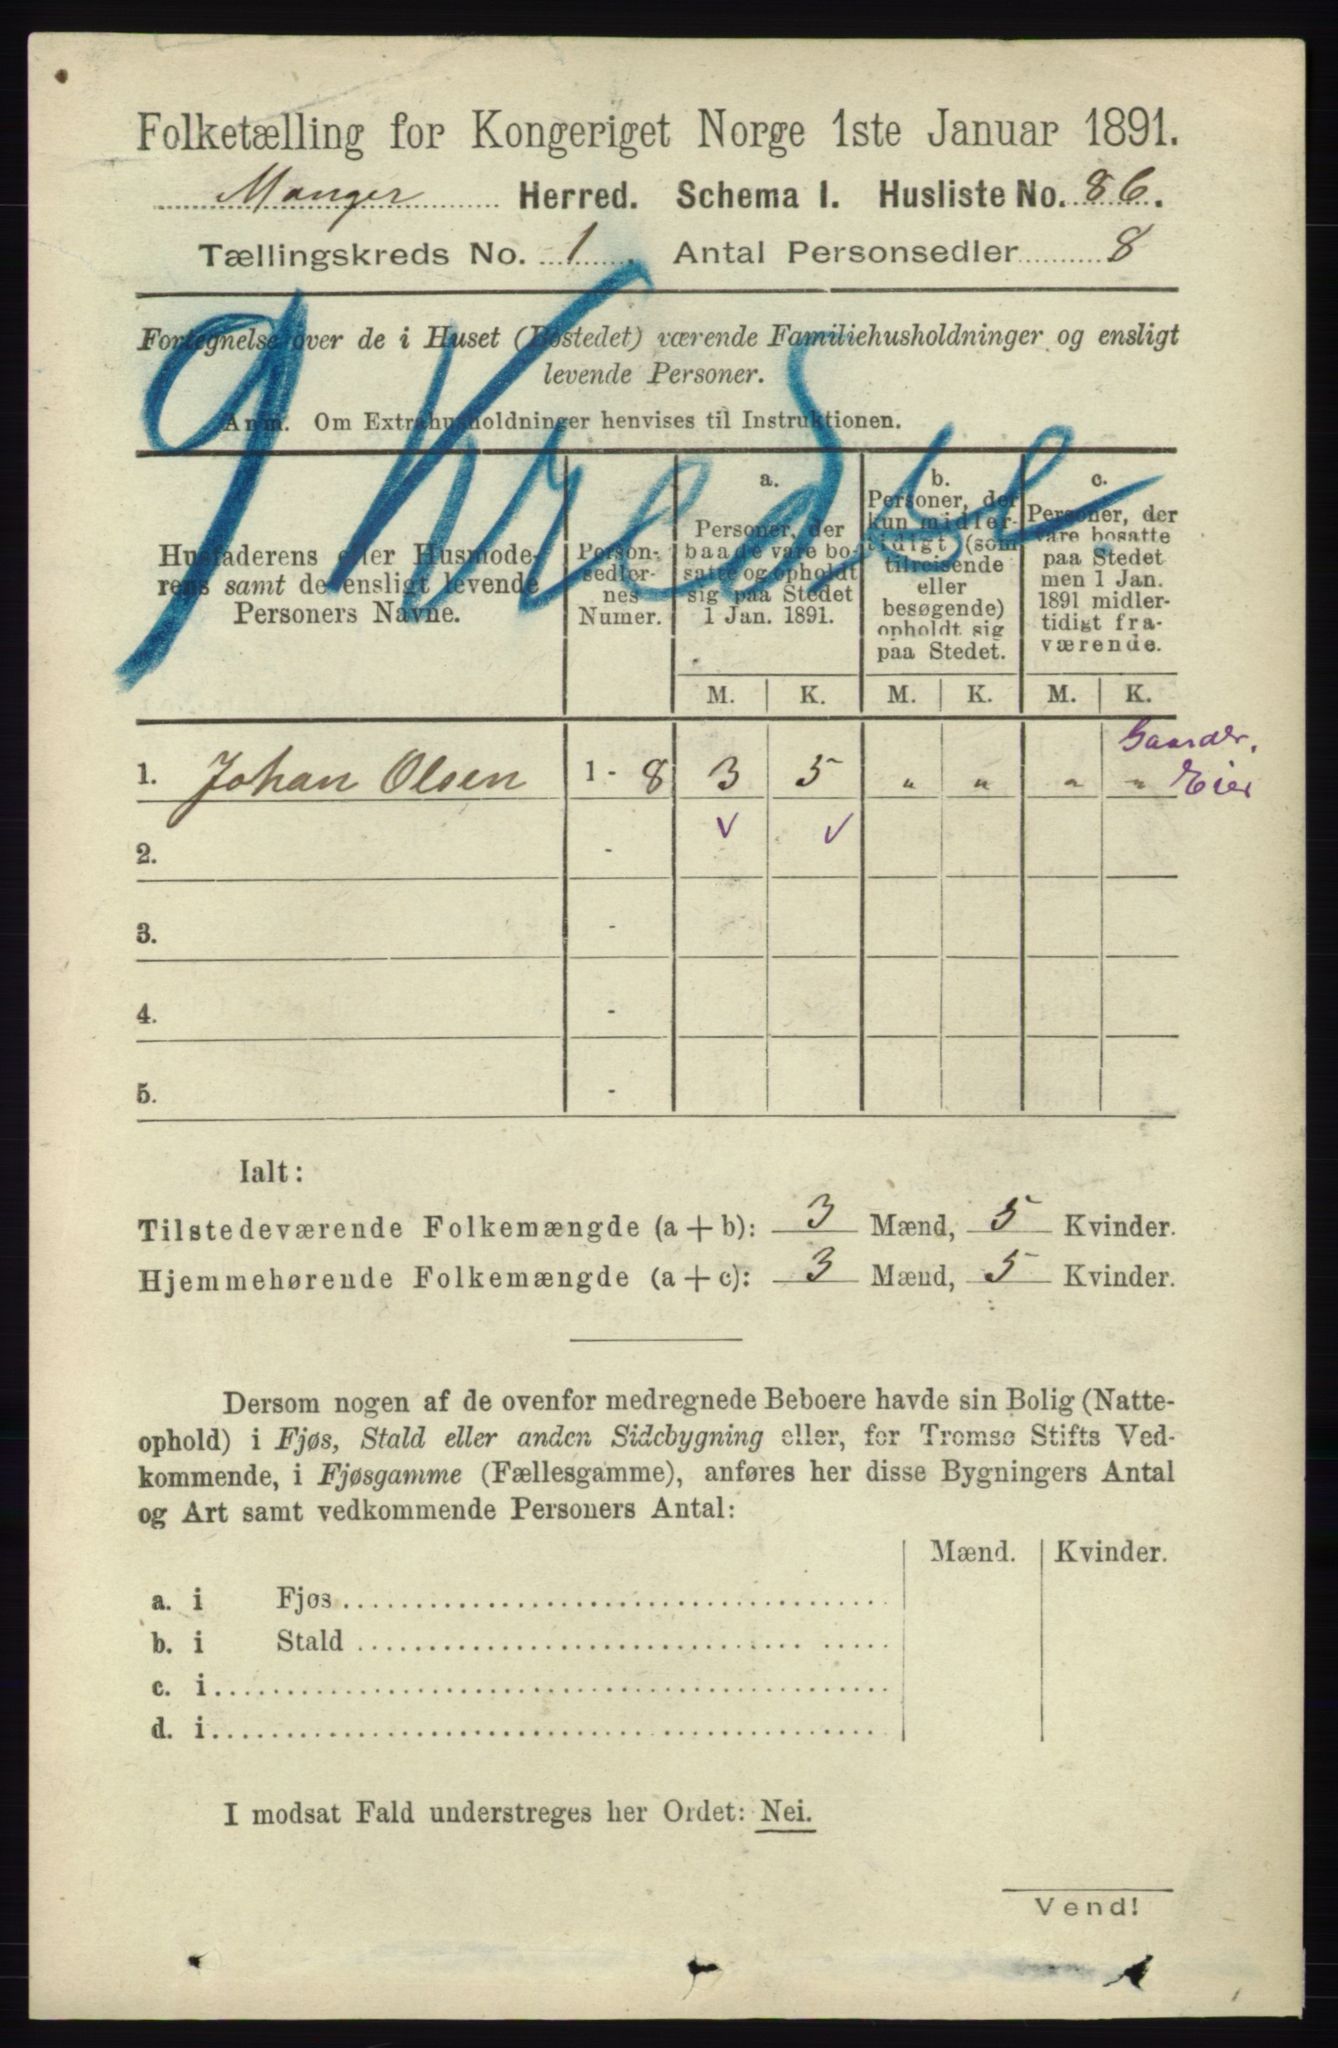 Folketælling for Kongeriget Norge 1ste Januar 1891.
Manger Herred. Schema I. Husliste No. 86.
Tællingskreds No. 1. Antal Personsedler 8
Fortegnelse over de i Huset (Bostedet) værende Familiehusholdninger og ensligt
levende Personer.
Anm. Om Extrahusholdninger henvises til Instruktionen.
Kreds
Husfaderens eller Husmode-
rens samt de ensligt levende
Personers Navne.
Person-
sedler-
nes
Numer.
a.
Personer, der
baade vare bo-
satte og opholdt
sig paa Stedet
1 Jan. 1891.
b.
Personer, der
kun midler-
tidigt (som
tilreisende
eller
besøgende)
opholdt sig
paa Stedet.
c.
Personer, der
vare bosatte
paa Stedet
men 1 Jan.
1891 midler-
tidigt fra-
værende.
M. K. M. K. M. K.
Gaardbr.
1. Johan Olsen 1 - 8 3 5 " " " " Eier
v v
2. -
3. -
4. -
5. -
Ialt:
Tilstedeværende Folkemængde (a + b): 3 Mænd, 5 Kvinder.
Hjemmehørende Folkemængde (a + c): 3 Mænd, 5 Kvinder.
Dersom nogen af de ovenfor medregnede Beboere havde sin Bolig (Natte-
ophold) i Fjøs, Stald eller anden Sidebygning eller, for Tromsø Stifts Ved-
kommende, i Fjøsgamme (Fællesgamme), anføres her disse Bygningers Antal
og Art samt vedkommende Personers Antal:
Mænd. Kvinder.
a. i Fjøs
b. i Stald
c. i
d. i
I modsat Fald understreges her Ordet: Nei.
Vend!